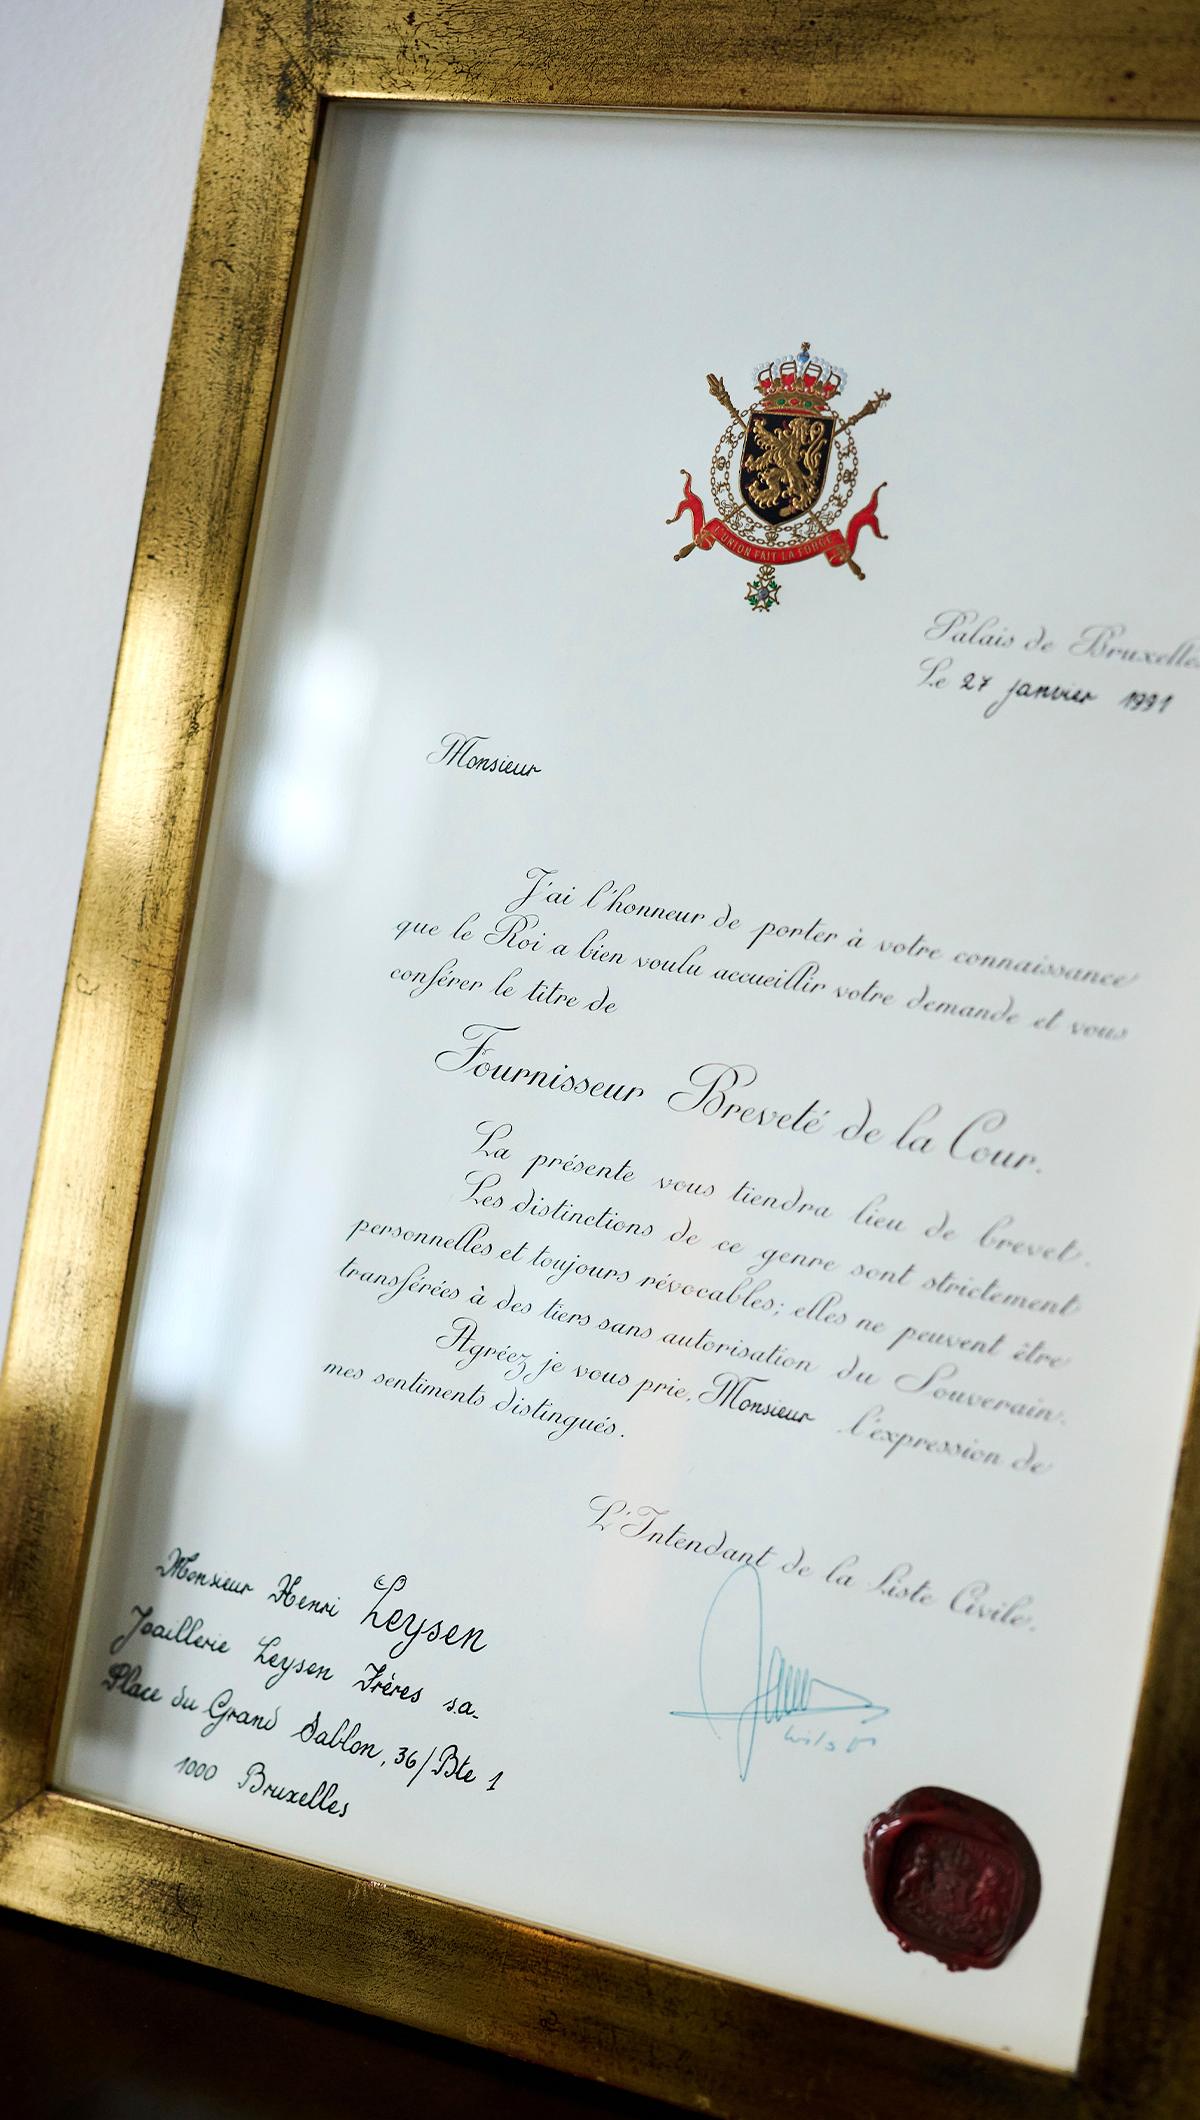 L'UNION FAIT LA FORCE
Palais de Bruxelles
Le 27 janvier 1991
Monsieur
J'ai l'honneur de porter à votre connaissance
que le Roi a bien voulu accueillir votre demande et vous
conférer le titre de
Fournisseur Breveté de la Cour.
La présente vous tiendra lieu de brevet.
Les distinctions de ce genre sont strictement
personnelles et toujours révocables; elles ne peuvent être
transférées à des tiers sans autorisation du Souverain.
Agréez, je vous prie, Monsieur l'expression de
mes sentiments distingués.
L'Intendant de la Liste Civile.
Monsieur Henri Leysen
Joaillerie Leysen Frères s.a.
Place du Grand Sablon, 36/Bte 1
1000 Bruxelles